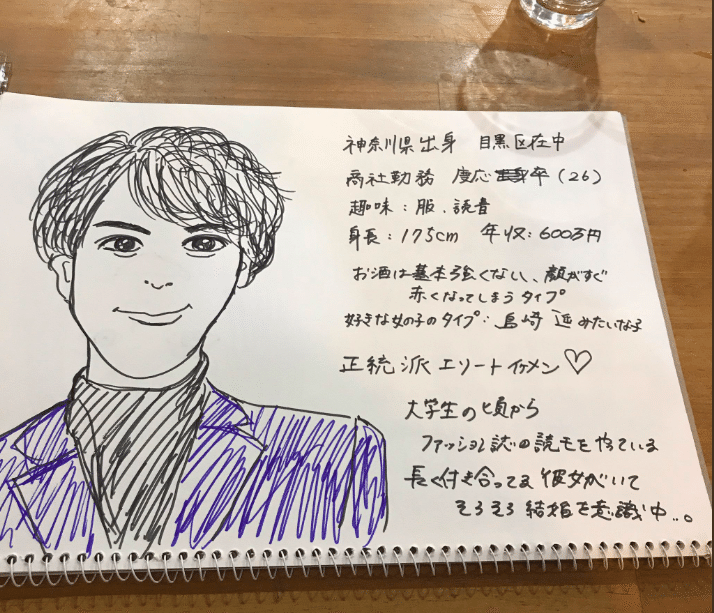 神奈川県出身 目黒区在中
商社勤務 慶応卒(26)
趣味:服、読書
身長:175cm 年収:600万円
お酒は基本強くない、顔がすぐ
赤くなってしまうタイプ
好きな女の子のタイプ:島崎遥みたいな子
正統派エリートイケメン♡
大学生の頃から
ファッション誌の読モをやっている
長く付き合ってる彼女がいて
そろそろ結婚を意識中...。